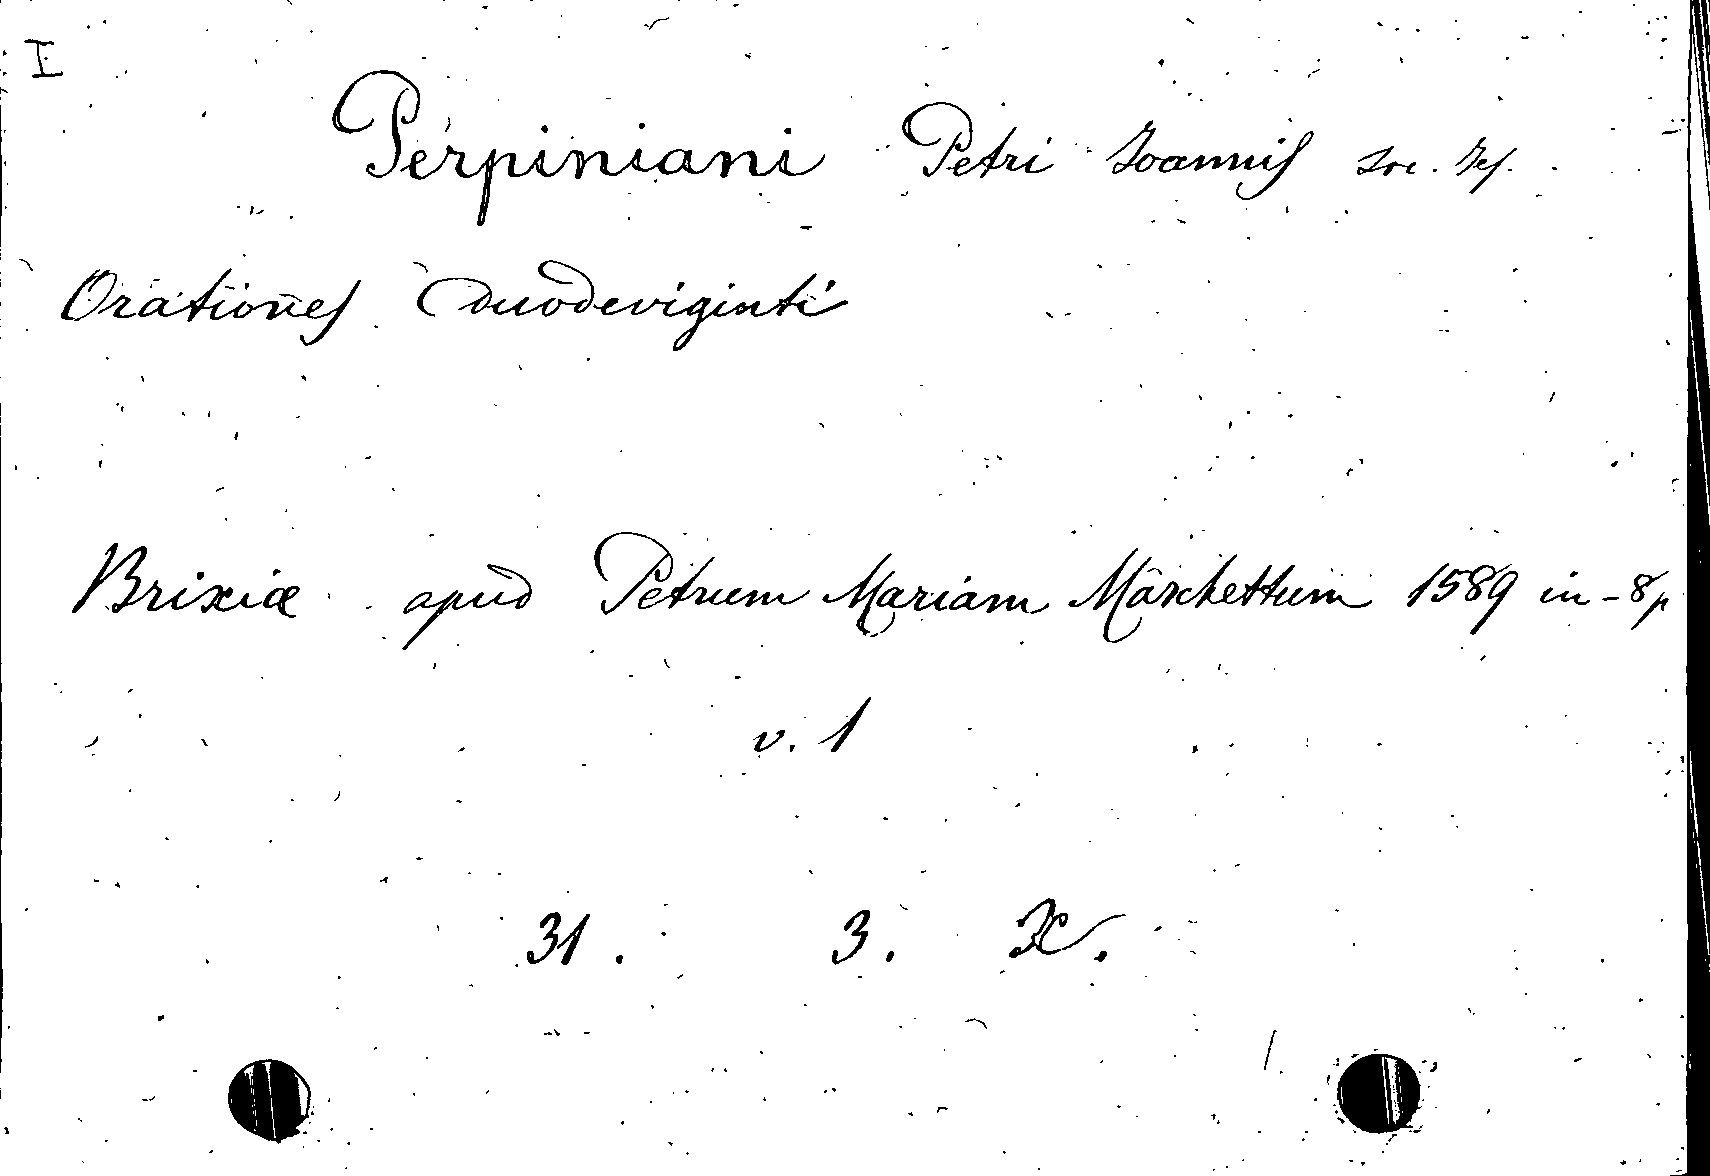 I
Perpiniani Petri Ioannis Soc. Jes.
Orationes duodeviginti
Brixiæ apud Petrum Mariam Marchettum 1589 in-8p
v. 1
31. 3. K.